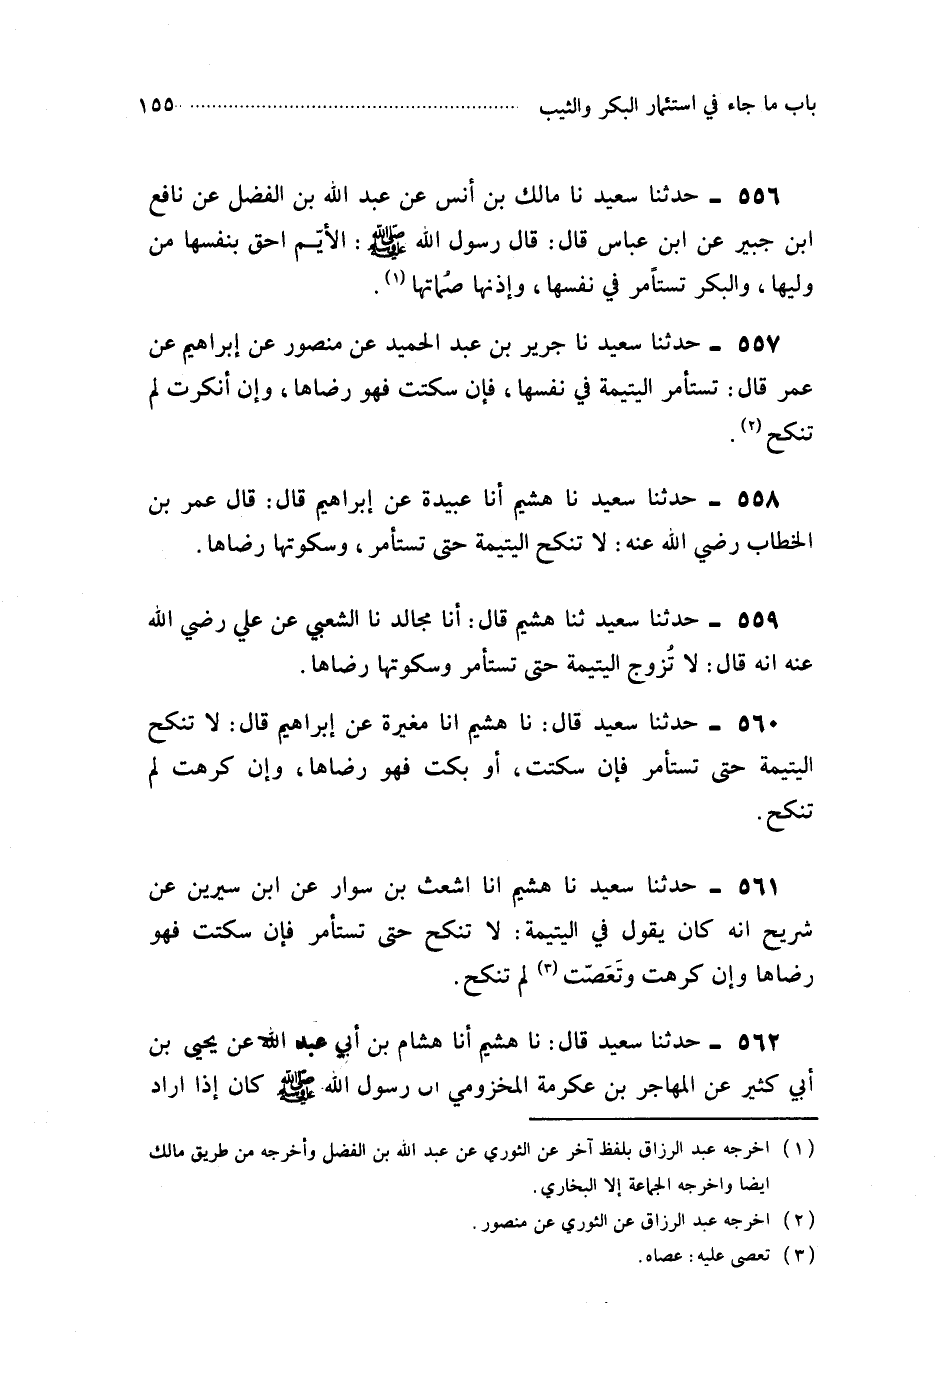 باب ما جاء في استئمار البكر والثيب ........................................................ ١٥٥
٥٥٦ ـ حدثنا سعيد نا مالك بن أنس عن عبد الله بن الفضل عن نافع
ابن جبير عن ابن عباس قال: قال رسول الله ﷺ: الأيّم احق بنفسها من
وليها، والبكر تستأمر في نفسها، وإذنها صُماتها (١).
٥٥٧ ـ حدثنا سعيد نا جرير بن عبد الحميد عن منصور عن إبراهيم عن
عمر قال: تستأمر اليتيمة في نفسها، فإن سكتت فهو رضاها، وإن أنكرت لم
تنكح (٢).
٥٥٨ ـ حدثنا سعيد نا هشيم أنا عبيدة عن إبراهيم قال: قال عمر بن
الخطاب رضي الله عنه: لا تنكح اليتيمة حتى تستأمر، وسكوتها رضاها.
٥٥٩ ـ حدثنا سعيد ثنا هشيم قال: أنا مجالد نا الشعبي عن علي رضي الله
عنه انه قال: لا تُزوج اليتيمة حتى تستأمر وسكوتها رضاها.
٥٦٠ ـ حدثنا سعيد قال: نا هشيم انا مغيرة عن إبراهيم قال: لا تنكح
اليتيمة حتى تستأمر فإن سكتت، أو بكت فهو رضاها، وإن كرهت لم
تنكح.
٥٦١ ـ حدثنا سعيد نا هشيم انا اشعث بن سوار عن ابن سيرين عن
شريح انه كان يقول في اليتيمة: لا تنكح حتى تستأمر فإن سكتت فهو
رضاها وإن كرهت وتَعَصّت (٣) لم تنكح.
٥٦٢ ـ حدثنا سعيد قال: نا هشيم أنا هشام بن أبي عبد الله عن يحيى بن
أبي كثير عن المهاجر بن عكرمة المخزومي ان رسول الله ﷺ كان إذا اراد
(١) اخرجه عبد الرزاق بلفظ آخر عن الثوري عن عبد الله بن الفضل وأخرجه من طريق مالك
ايضا واخرجه الجماعة إلا البخاري.
(٢) اخرجه عبد الرزاق عن الثوري عن منصور.
(٣) تعصى عليه: عصاه.